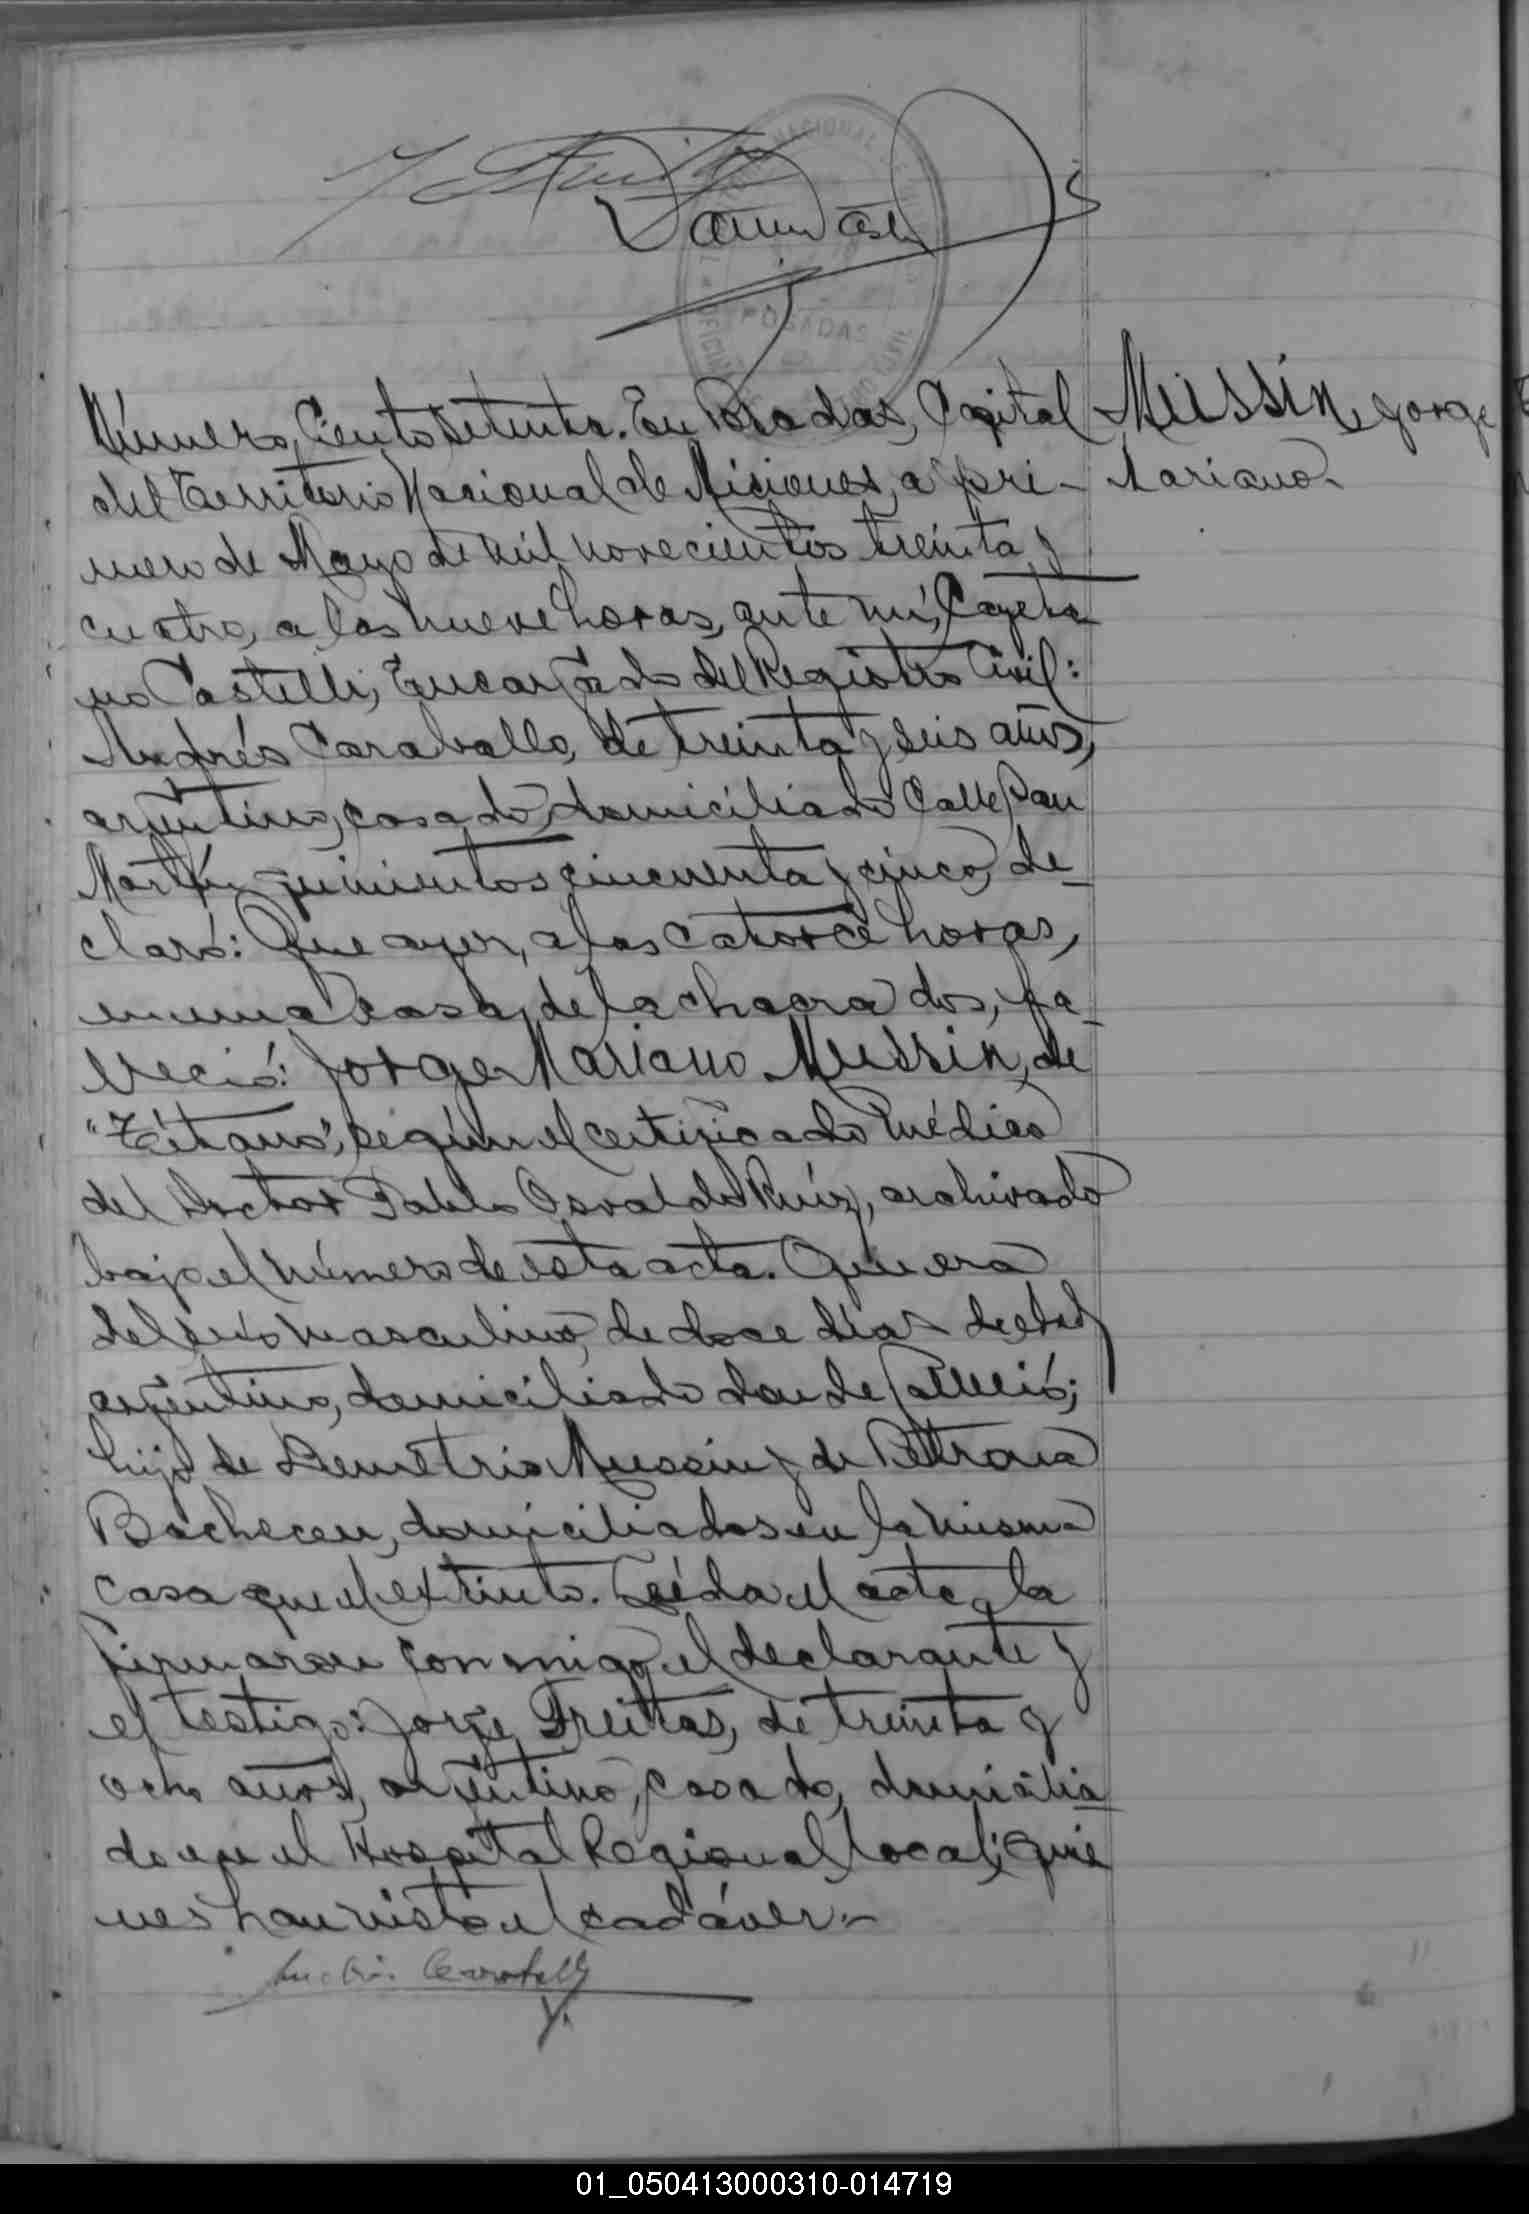 NACIONAL DE
POSADAS
Número, Ciento setenta. En Posadas, Capital
Mussin, Jorge
del Territorio Nacional de Misiones, a pri-
Mariano.
mero de Mayo de mil novecientos treinta y
cuatro, a las nueve horas, ante mí, Cayeta
no Castelli, Encargado del Registro Civil:
Andrés Caraballo, de treinta y seis años,
argentino, casado, domiciliado Calle San
Martín quinientos cincuenta y cinco, de-
claró: Que ayer, a las catorce horas,
en una casa, de la chacra dos, fa-
lleció: Jorge Mariano Mussin, de
"Tétano", según el certificado médico
del Doctor Pablo Osvaldo Ruíz, archivado
bajo el número de esta acta. Que era
del sexo masculino, de doce días de edad,
argentino, domiciliado donde falleció;
hijo de Demetrio Mussin y de Petrona
Bacheceu, domiciliados en la misma
casa que el extinto. Leída el acta, la
firmaron conmigo, el declarante y
el testigo: Jorge Freitas, de treinta y
ocho años, argentino, casado, domicilia
do en el Hospital Regional, local; quie
nes han visto el cadáver.-
01_050413000310-014719